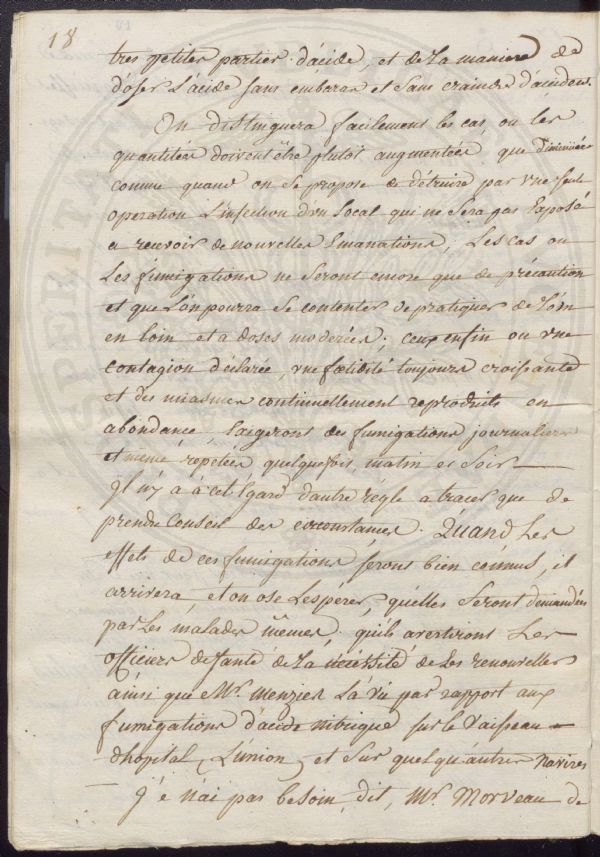 18
tres petites parties d'acide, et de la maniere de
doser l'acide sans embaras et sans craindre d'accidens.
On distinguera facilement les cas, ou les
quantités doivent être plutôt augmentées que diminuées
comme quand on se propose de détruire par une seule
operation l'infection d'un local qui ne sera pas Exposé
a recevoir de nouvelles Emanations, Les cas ou
Les fumigations ne seront encore que de précaution
et que l'on pourra se contenter de pratiquer de loin
en loin et a doses moderées; ceux enfin ou une
contagion déclarée, une fœtidité toujours croissante
et des miasmes continuellement reproduits en
abondance Exigeront des fumigations journalieres
et même répétées quelquefois matin et soir
Il n'y a à cet Egard d'autre régle a tracer que de
prendre Conseil des circonstances. Quand Les
effets de ces fumigations seront bien connus, il
arrivera et on ose L'espérer, qu'elles seront demandées
par Les malades mêmes qu'ils avertiront Les
officiers de santé de La nécessité de Les renouveller
ainsi que Mr. Menzies L'a vu par rapport aux
fumigations d'acide nitrique sur le vaisseau
d'hopital, L'union, et sur quelqu'autres navires
Je n'ai pas besoin, dit, Mr. Morveau de